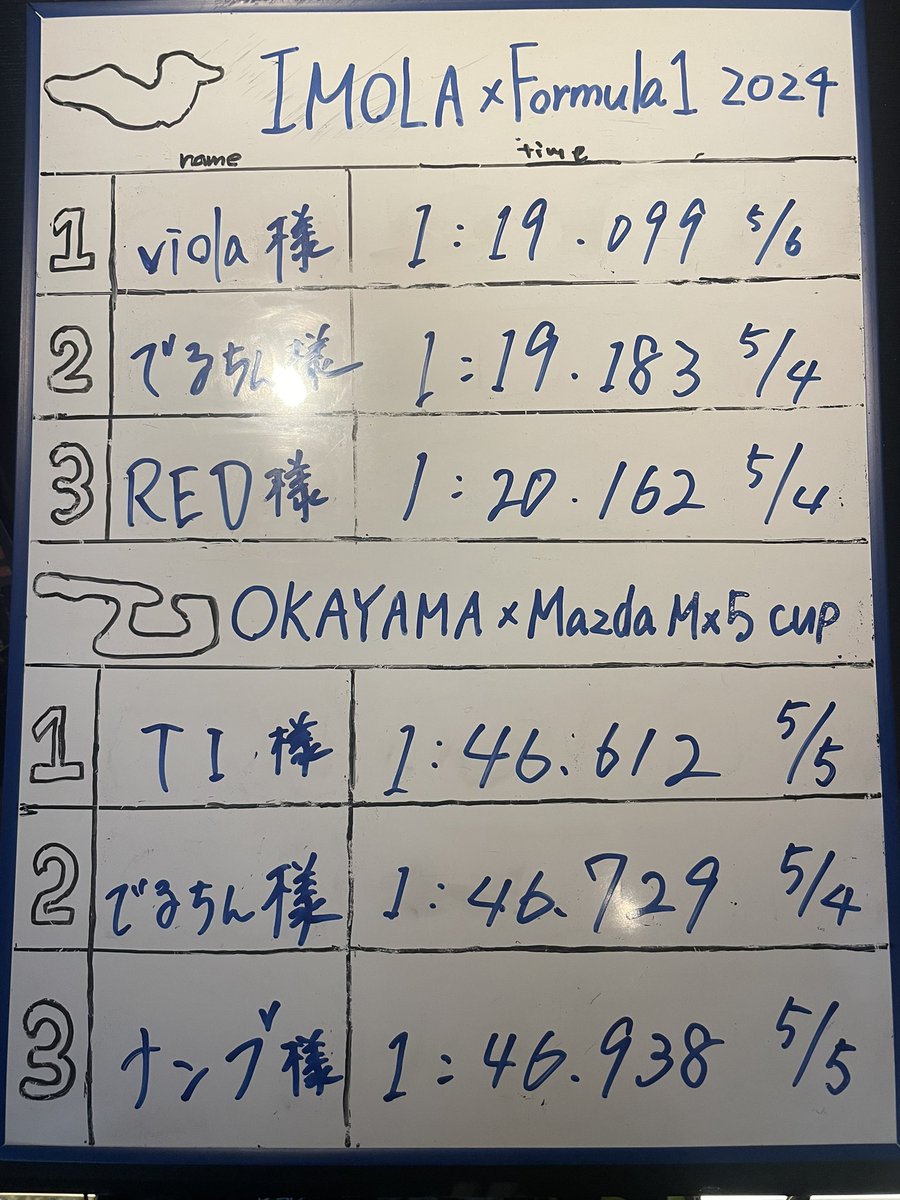 IMOLA x Formula1 2024
name time
1 viola様 1:19.099 5/6
2 でるちん様 1:19.183 5/4
3 RED様 1:20.162 5/4
OKAYAMA x Mazda Mx5 cup
1 TI様 1:46.612 5/5
2 でるちん様 1:46.729 5/4
3 ナンブ様 1:46.938 5/5